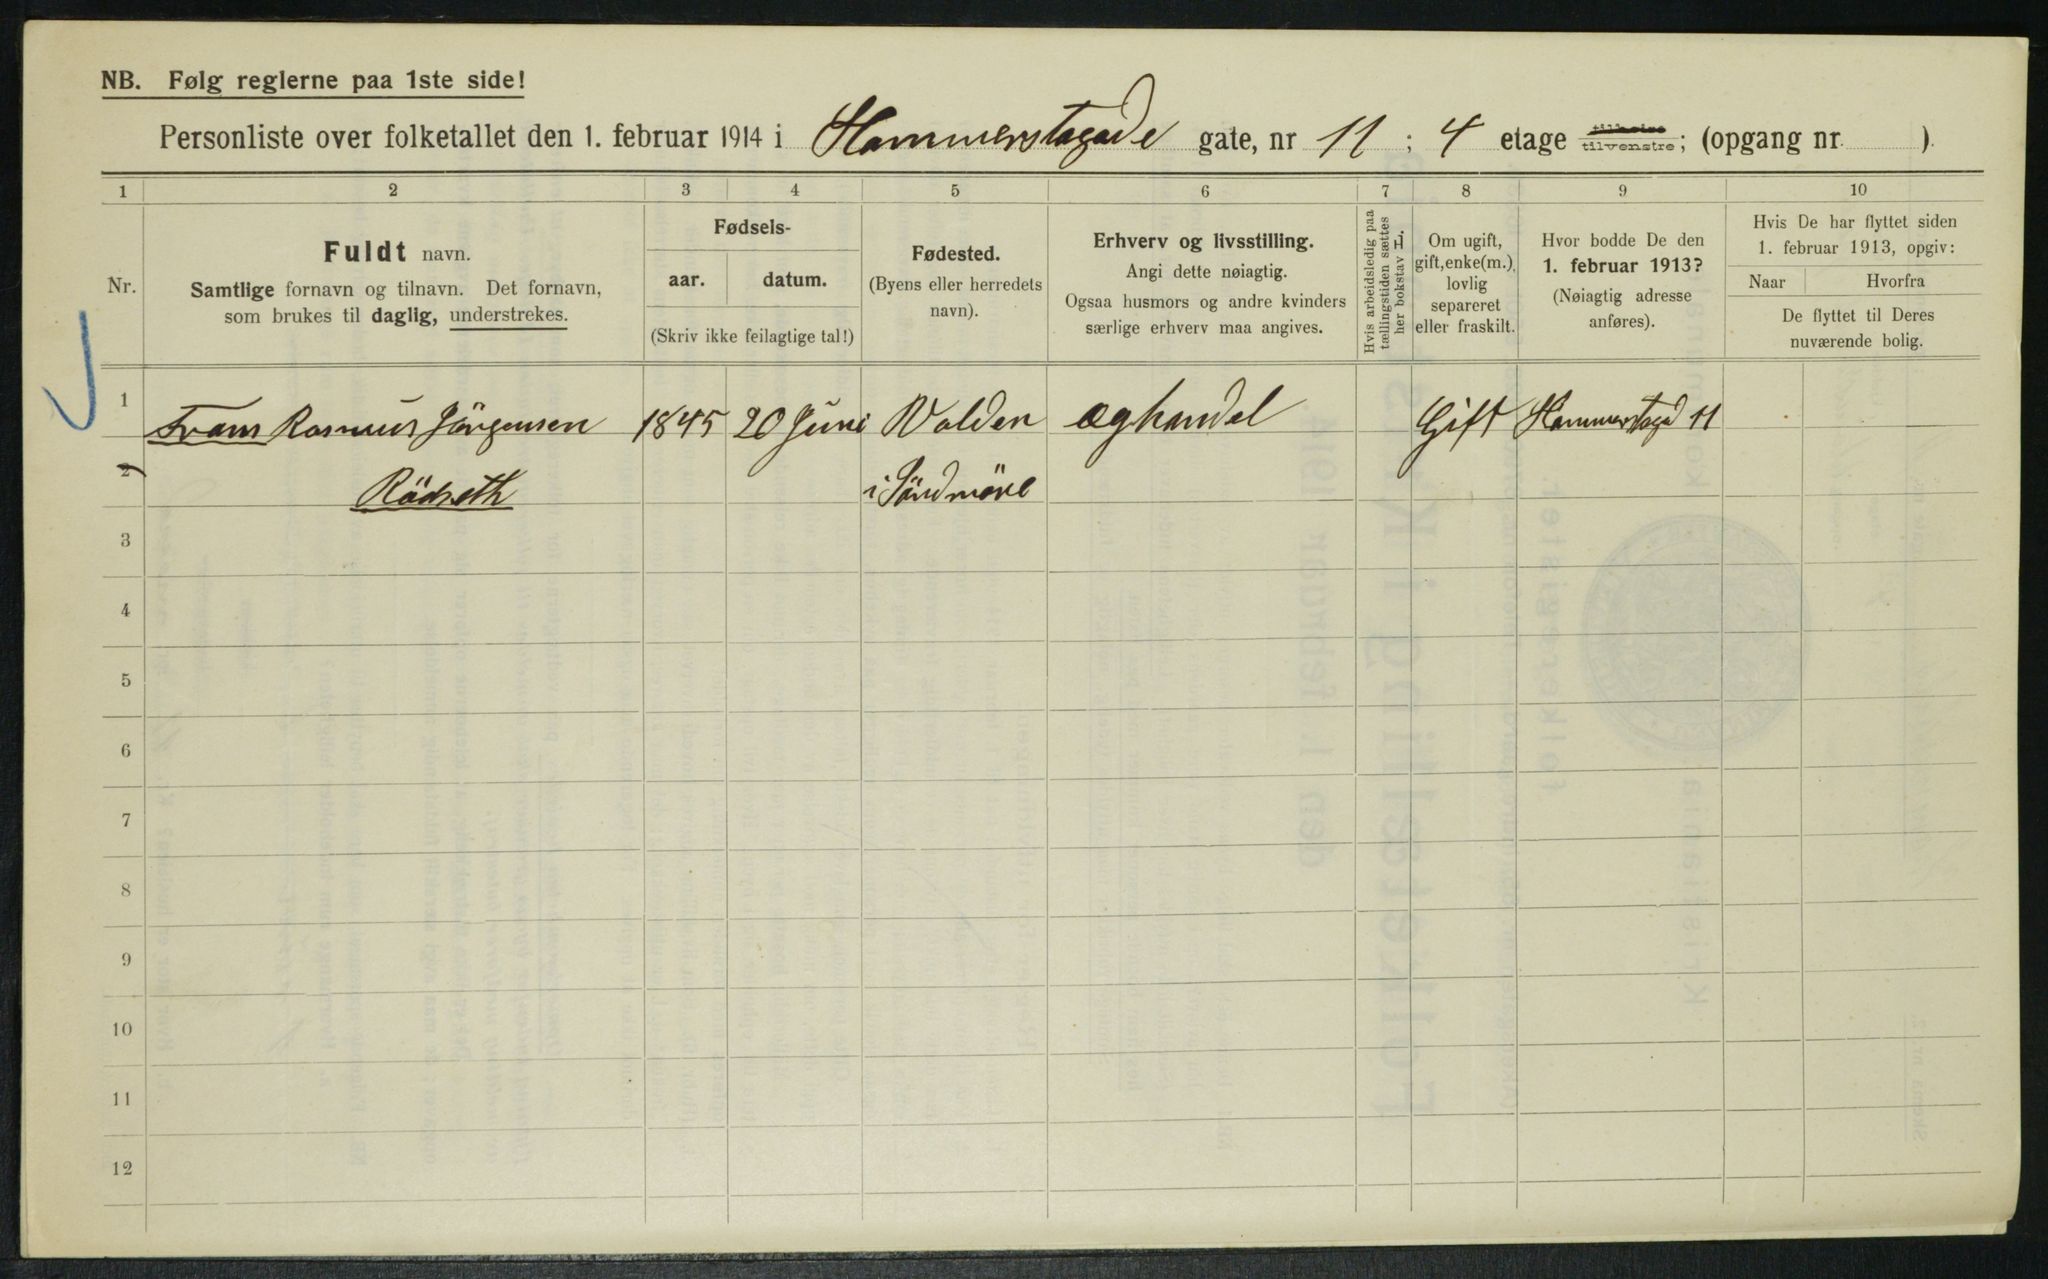 NB. Følg reglerne paa 1ste side!
Personliste over folketallet den 1. februar 1914 i Hammerstagade gate, nr 11 ; 4 etage tilvenstre; (opgang nr. ).
1 2 3 4 5 6 7 8 9 10
Nr.
Fuldt navn.
Samtlige fornavn og tilnavn. Det fornavn,
som brukes til daglig, understrekes.
Fødsels-
aar. datum.
(Skriv ikke feilagtige tal!)
Fødested.
(Byens eller herredets
navn).
Erhverv og livsstilling.
Angi dette nøiagtig.
Ogsaa husmors og andre kvinders
særlige erhverv maa angives.
Hvis arbeidsledig paa
tællingstiden sættes
her bokstav L.
Om ugift,
gift, enke(m.),
lovlig
separeret
eller fraskilt.
Hvor bodde De den
1. februar 1913?
(Nøiagtig adresse
anføres).
Hvis De har flyttet siden
1. februar 1913, opgiv:
Naar Hvorfra
De flyttet til Deres
nuværende bolig.
1 Frans Rasmus Jörgensen 1845 20 Juni Volden æghandel Gift Hammerstagd 11
2 Rödseth i Söndmöre
3
4
5
6
7
8
9
10
11
12